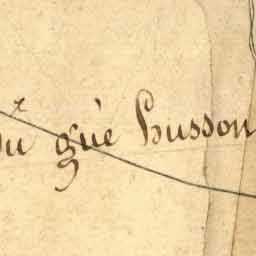 du gué husson